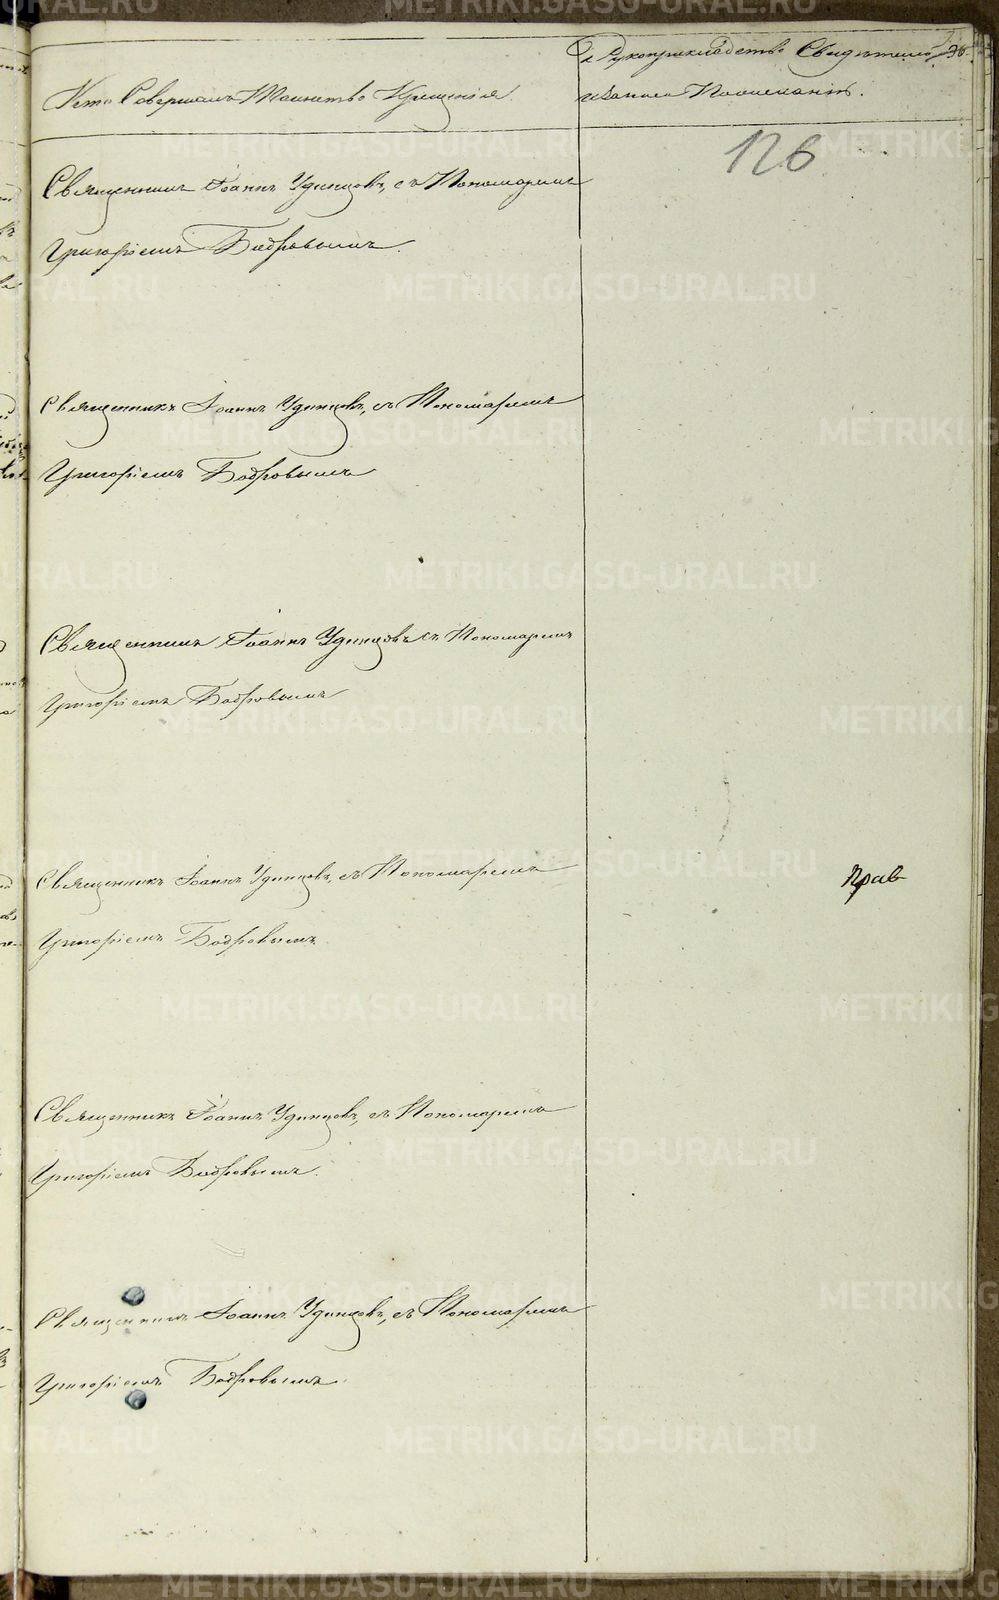 Кто Совершалъ Таинство Крещенія.
Рукоприкладство Свидѣтелей
записи по желанію.
126
Священникъ Іоаннъ Удинцовъ, съ Пономаремъ
Григоріемъ Бобровымъ.
Священникъ Іоаннъ Удинцовъ, съ Пономаремъ
Григоріемъ Бобровымъ
Священникъ Іоаннъ Удинцовъ съ Пономаремъ
Григоріемъ Бобровымъ
Священникъ Іоаннъ Удинцовъ, съ Пономаремъ
Прав
Григоріемъ Бобровымъ.
Священникъ Іоаннъ Удинцовъ, съ Пономаремъ
Григоріемъ Бобровымъ.
Священникъ Іоаннъ Удинцовъ, съ Пономаремъ
Григоріемъ Бобровымъ.
METRIKI.GASO-URAL.RU